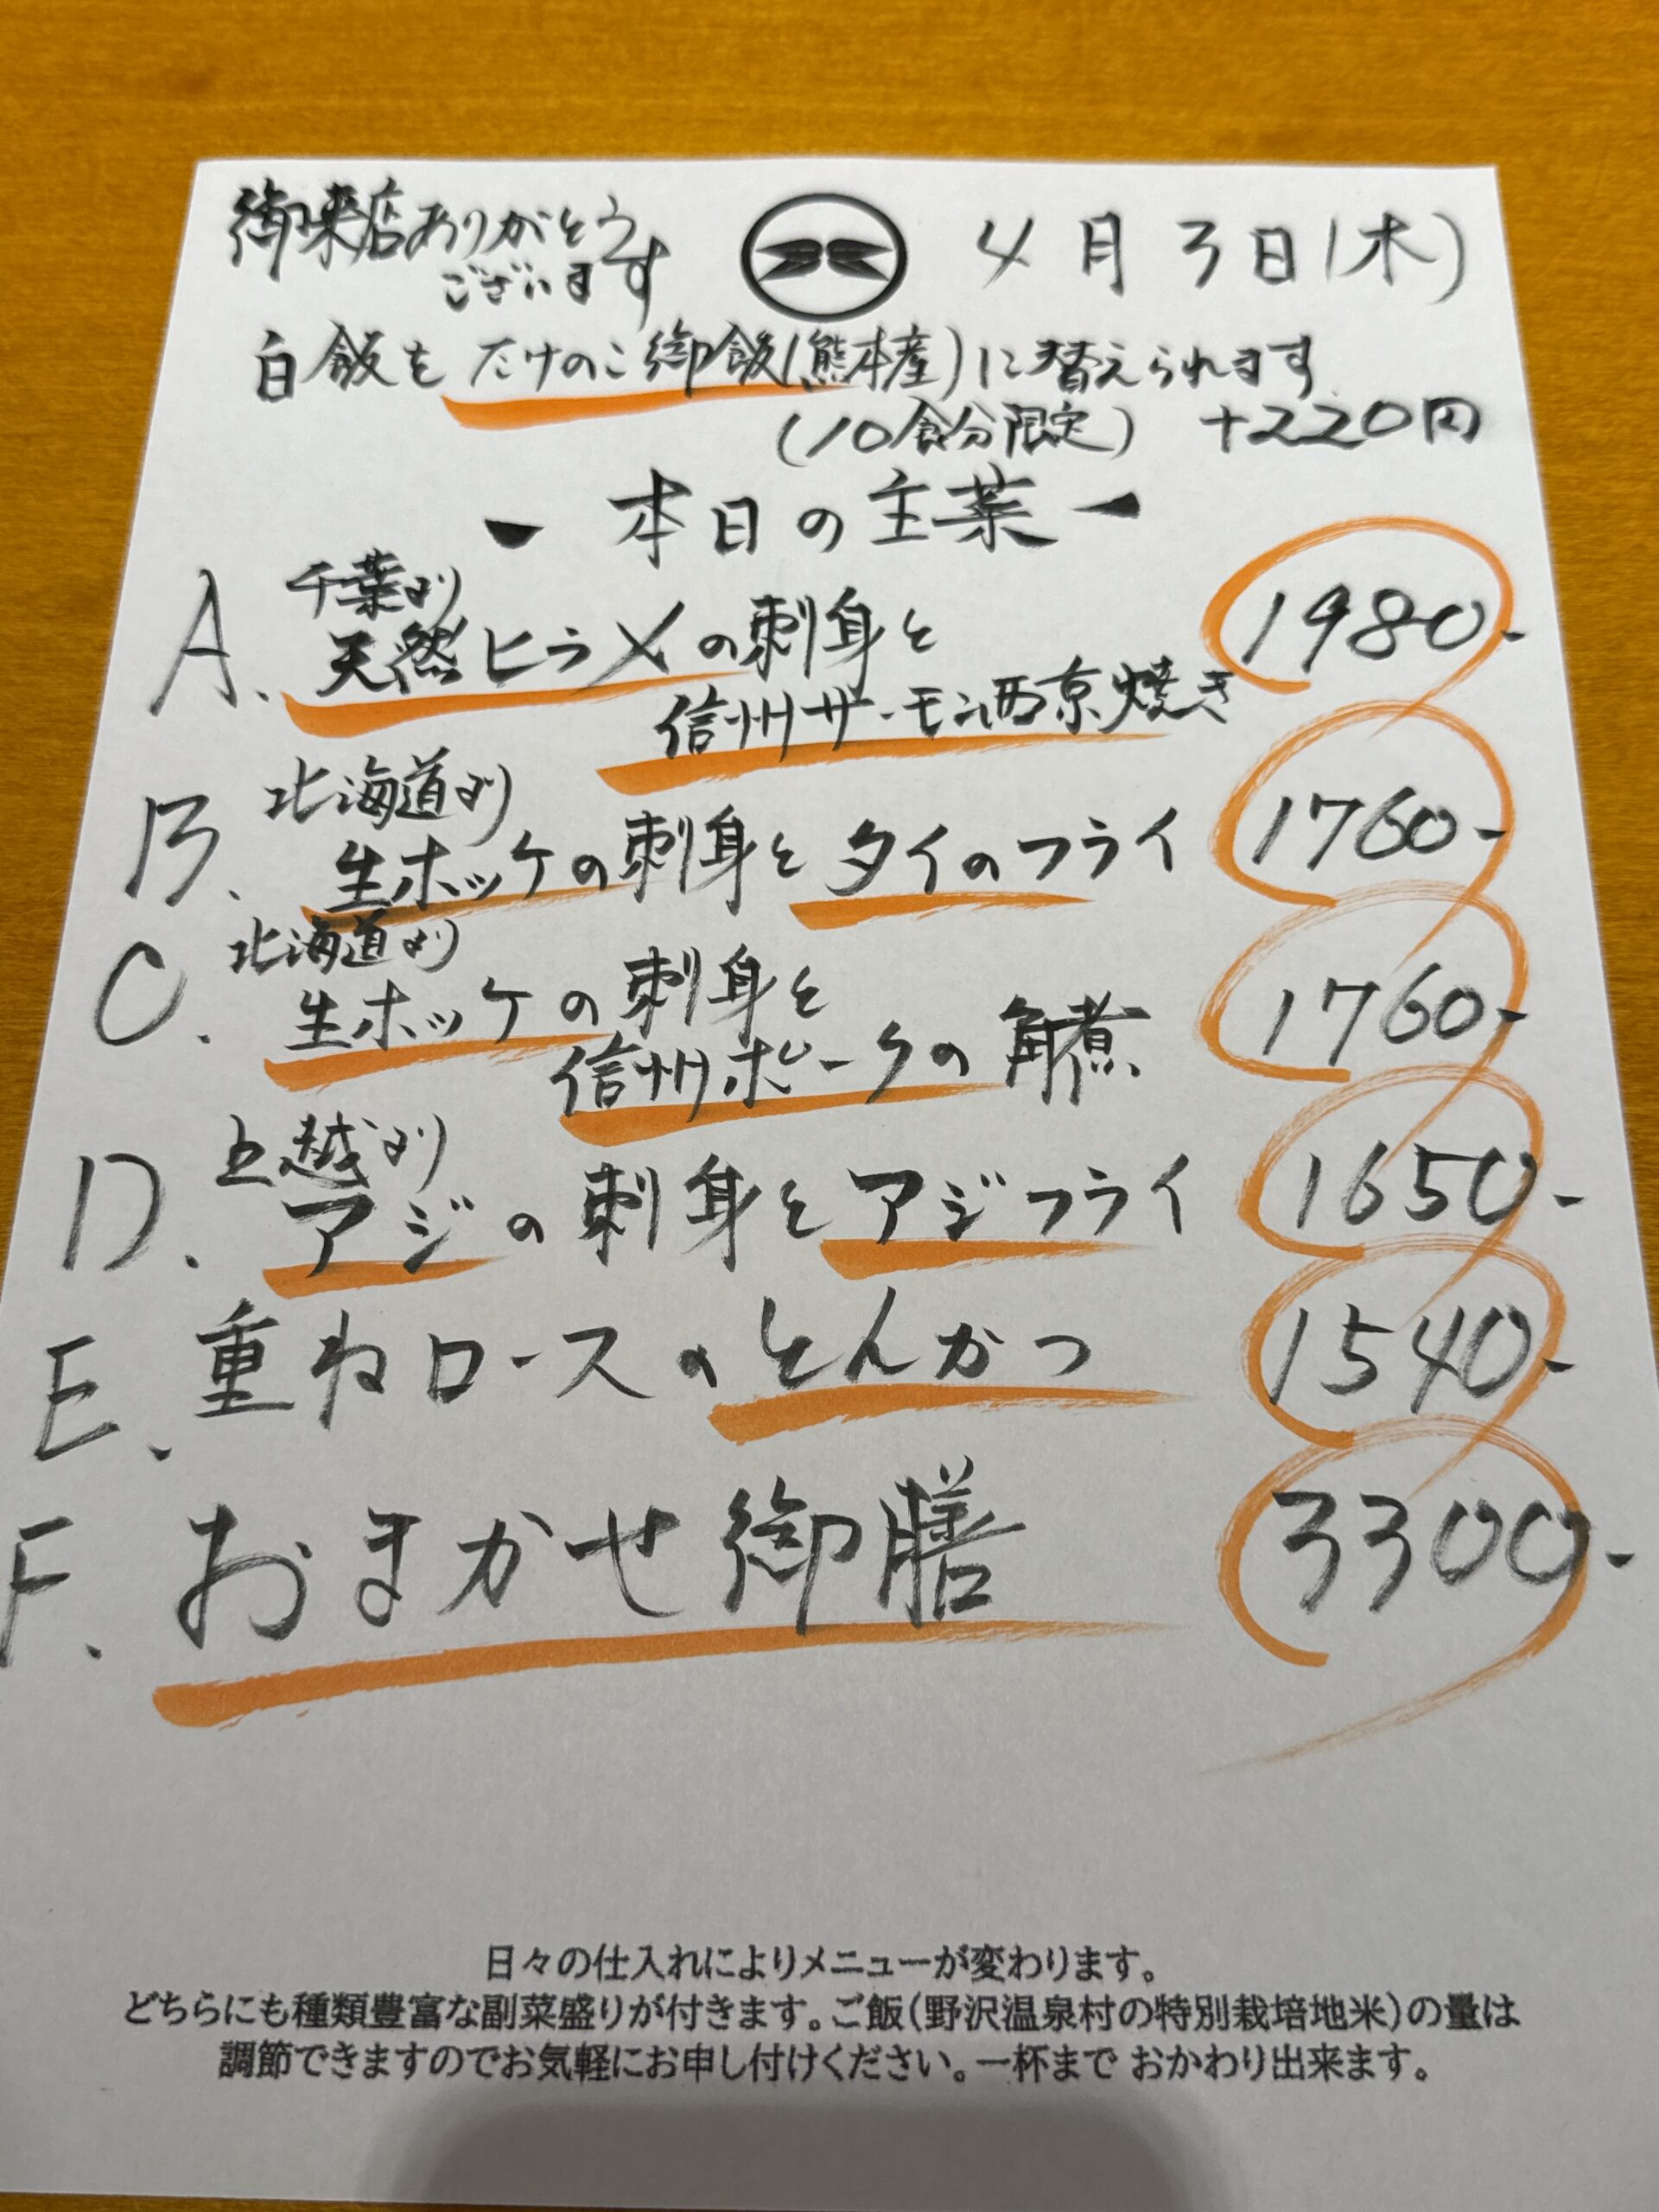 御来店ありがとう
ございます
4月3日(木)
白飯をたけのこ御飯(熊本産)に替えられます
(10食分限定) +220円
ー 本日の主菜 ー
千葉より
A. 天然ヒラメの刺身と 1980-
信州サーモン西京焼き
北海道より
B. 生ホッケの刺身とタイのフライ 1760-
北海道より
C. 生ホッケの刺身と 1760-
信州ポークの角煮
上越より
D. アジの刺身とアジフライ 1650-
E. 重ねロースのとんかつ 1540-
F. おまかせ御膳 3300-
日々の仕入れによりメニューが変わります。
どちらにも種類豊富な副菜盛りが付きます。ご飯(野沢温泉村の特別栽培地米)の量は
調節できますのでお気軽にお申し付けください。一杯まで おかわり出来ます。